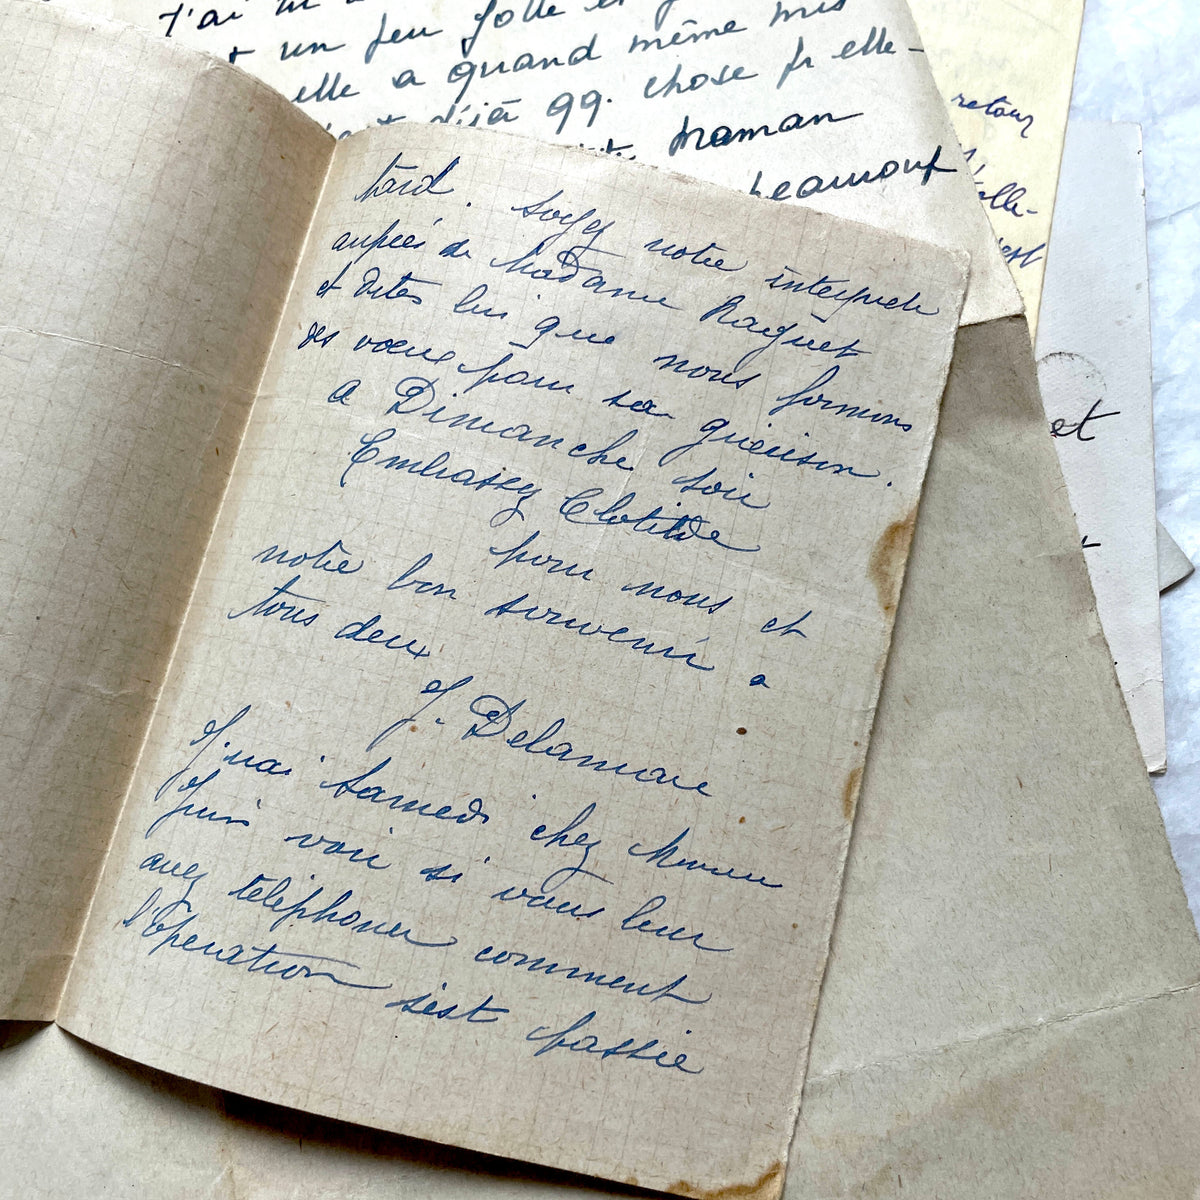 J'ai
un peu folle et
elle a quand même mis
déjà 99. chose pr elle-
maman
beaucoup
retour
et
tard. Soyez notre interprete
auprès de Madame Raquet
et dites lui que nous formons
des voeux pour sa guérison.
a Dimanche soir
Embrassez Clotilde
pour nous et
notre bon souvenir a
tous deux
J. Delamare
J'irai Samedi chez
Juin voir si vous leur
avez téléphoner comment
l'Opération s'est passée